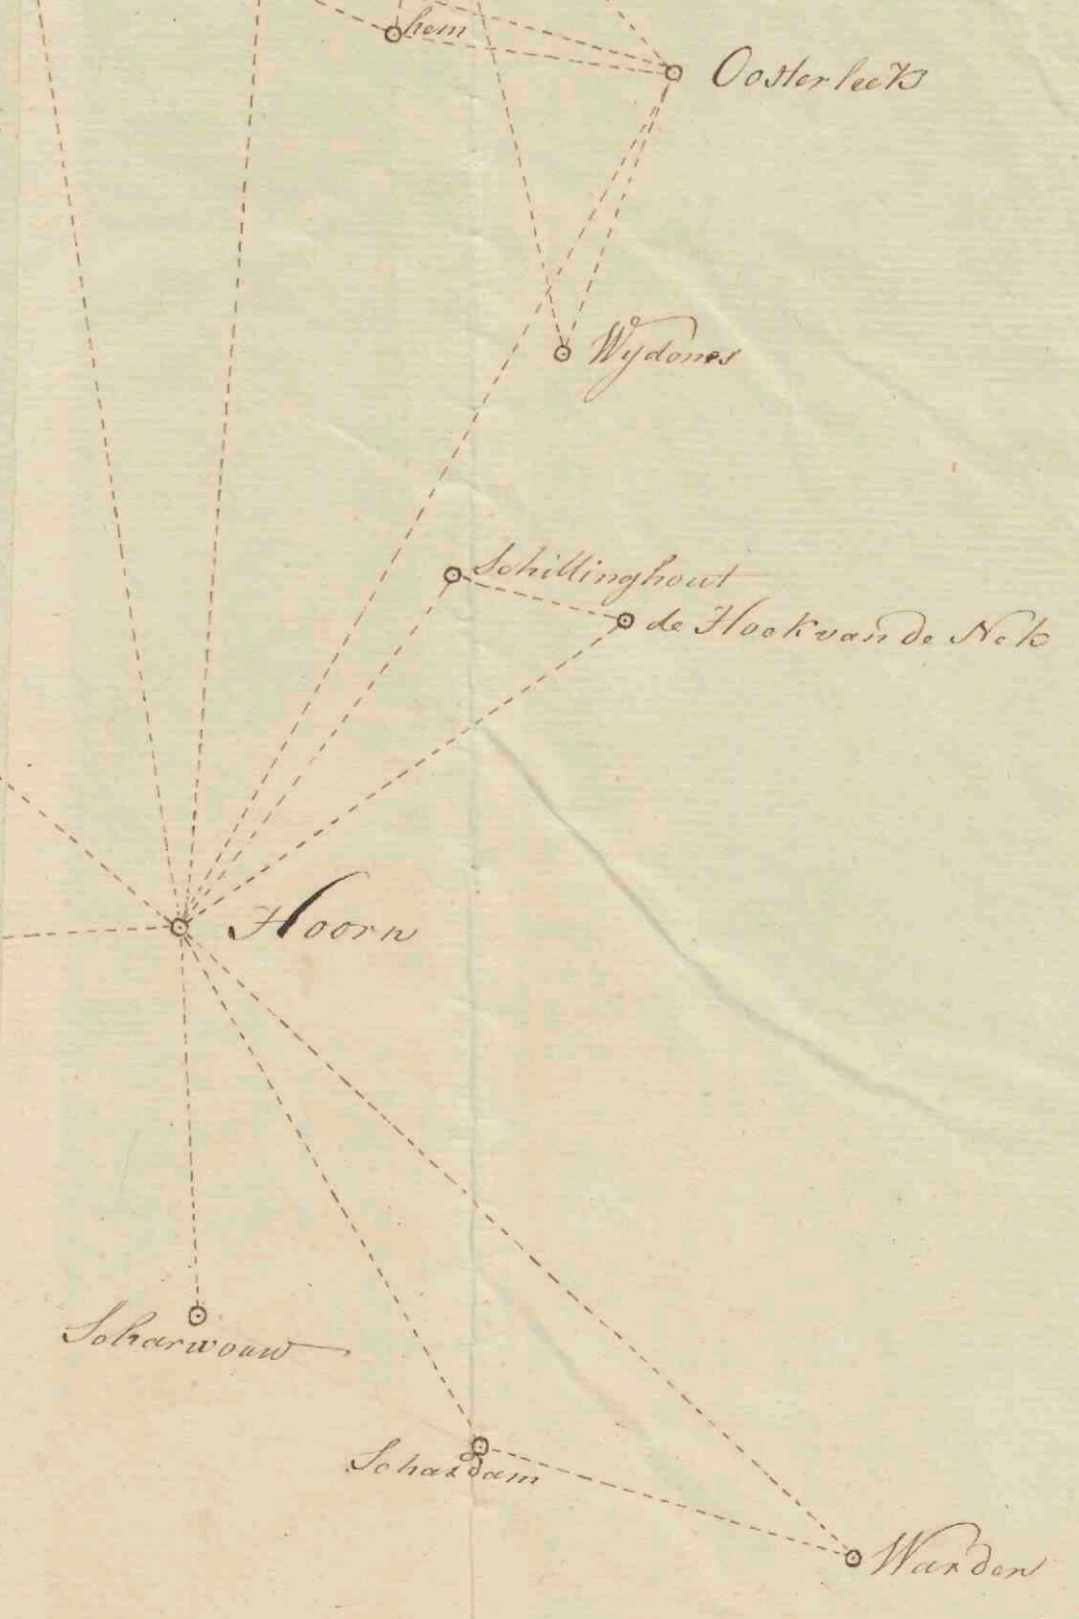 hem
Oosterleek
Wydones
Schillinghout
de Hoek van de Nek
Hoorn
Scharwouw
Schardam
Warder